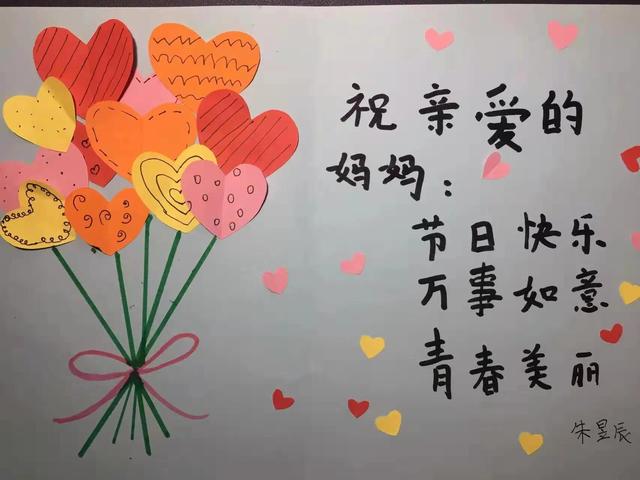 祝亲爱的
妈妈：
节日快乐
万事如意
青春美丽
朱昱辰